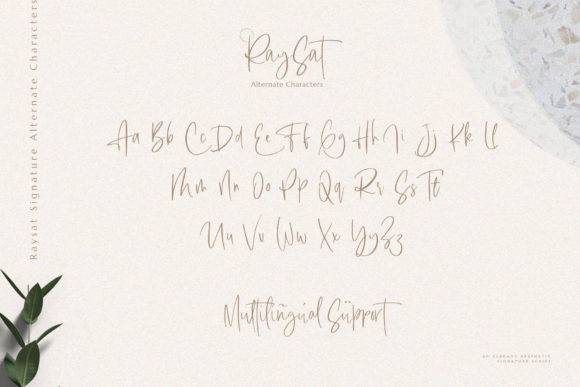 Raysat Signature Alternate Characters
RaySat
Alternate Characters
Aa Bb Cc Dd Ee Ff Gg Hh Ii Jj Kk Ll
Mm Nn Oo Pp Qq Rr Ss Tt
Uu Vv Ww Xx Yy Zz
Multilingüal Süpport
AN ELEGANT AESTHETIC
SIGNATURE SCRIPT